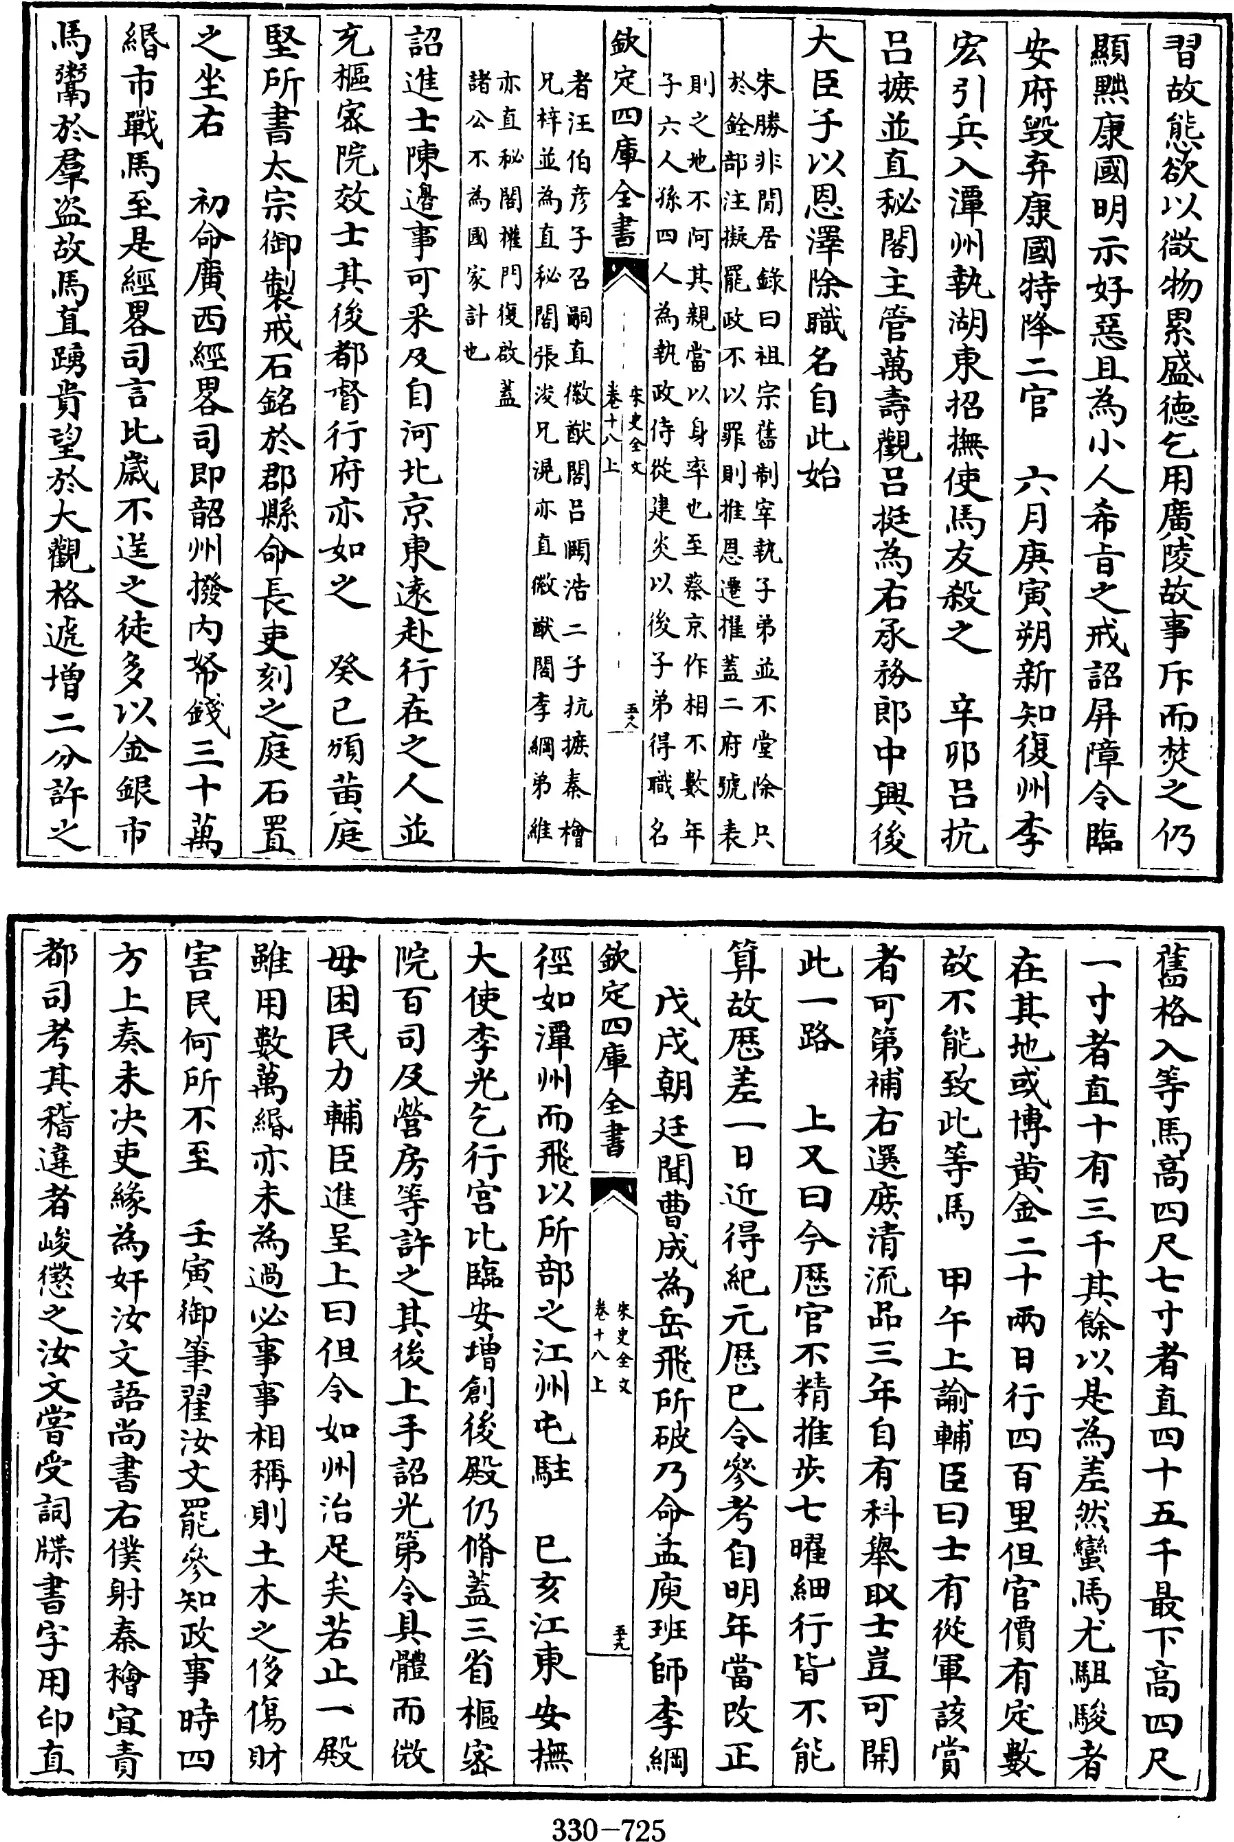 習故態欲以微物累盛徳乞用廣陵故事斥而焚之仍
顯黜康國明示好惡且為小人希旨之戒詔屏障令臨
安府毀弃康國特降二官　六月庚寅朔新知復州李
宏引兵入潭州執湖東招撫使馬友殺之　辛卯呂抗
呂摭並直秘閣主管萬壽觀呂挺為右承務郎中興後
大臣子以恩澤除職名自此始
朱勝非閒居錄曰祖宗舊制宰執子弟並不堂除只
於銓部注擬罷政不以罪則推恩遷擢蓋二府號表
則之地不阿其親當以身率也至蔡京作相不數年
子六人孫四人為執政侍從建炎以後子弟得職名
欽定四庫全書
宋史全文
卷十八上
五八
者汪伯彦子召嗣直徽猷閣呂頤浩二子抗摭秦檜
兄梓並為直秘閣張浚兄滉亦直徽猷閣李綱弟維
亦直秘閣權門復啟蓋
諸公不為國家計也
詔進士陳邊事可采及自河北京東遠赴行在之人並
充樞密院效士其後都督行府亦如之　癸巳頒黄庭
堅所書太宗御製戒石銘於郡縣命長吏刻之庭石置
之坐右　初命廣西經畧司即韶州撥内帑錢三十萬
緡市戰馬至是經畧司言比歲不逞之徒多以金銀市
馬鬻於羣盗故馬直踴貴望於大觀格遞增二分許之
舊格入等馬高四尺七寸者直四十五千最下高四尺
一寸者直十有三千其餘以是為差然蠻馬尤駔駿者
在其地或博黄金二十兩日行四百里但官價有定數
故不能致此等馬　甲午上諭輔臣曰士有從軍該賞
者可第補右選庻清流品三年自有科舉取士豈可開
此一路　上又曰今厯官不精推步七曜細行皆不能
算故厯差一日近得紀元厯已令參考自明年當改正
戊戌朝廷聞曹成為岳飛所破乃命孟庾班師李綱
欽定四庫全書
宋史全文
卷十八上
五九
徑如潭州而飛以所部之江州屯駐　已亥江東安撫
大使李光乞行宫比臨安增創後殿仍脩蓋三省樞密
院百司及營房等許之其後上手詔光第令具體而微
毋困民力輔臣進呈上曰但令如州治足矣若止一殿
雖用數萬緡亦未為過必事事相稱則土木之侈傷財
害民何所不至　壬寅御筆翟汝文罷參知政事時四
方上奏未决吏緣為奸汝文語尚書右僕射秦檜宜責
都司考其稽違者峻懲之汝文嘗受詞牒書字用印直
330-725